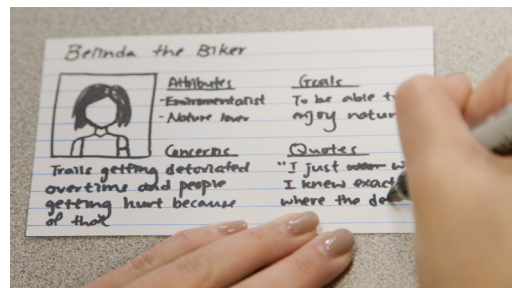 Belinda the Biker
Attributes
- Enviromentalist
- Nature lover
Goals
To be able t
enjoy natur
Concerns
Trails getting detoriated
overtime and people
getting hurt because
of that
Quotes
"I just wear w
I knew exact
where the de